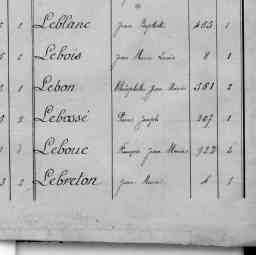 1 Leblanc Jean Baptiste 1
1 Lebois Jean Marie Louis 8 1
1 Lebon Théophile Jean Marie 361 2
2 Lebossé Pierre Joseph 207 1
Lebouc François Jean Marie 922
3 2 Lebreton Jean Marie